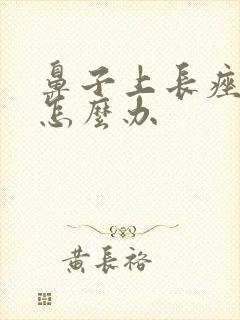 鼻子上長痤
怎麼办
黄長裕